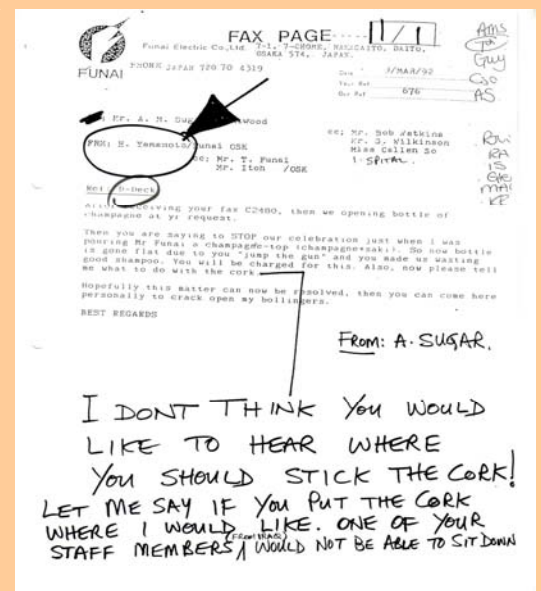 FAX PAGE----1/1
Funai Electric Co.,Ltd. 7-1, 7-CHOME, NAKAGAITO, DAITO,
OSAKA 574, JAPAN.
FUNAI
PHONE JAPAN 720 70 4319
Date 3/MAR/92
Your Ref
Our Ref 676
AMS
Guy
CSO
AS
Mr. A. M.
cc; Mr. Bob Watkins
Mr. S. Wilkinson
Miss Callen So
FRM: H. Yamamoto/Funai OSK
cc; Mr. T. Funai
Mr. Itoh /OSK
RA
IS
Re: D-Deck
After receiving your fax C2480, then we opening bottle of
champagne at yr request.
Then you are saying to STOP our celebration just when I was
pouring Mr Funai a champagne-top (champagne+saki). So now bottle
is gone flat due to you "jump the gun" and you made us wasting
good shampoo. You will be charged for this. Also, now please tell
me what to do with the cork
Hopefully this matter can now be resolved, then you can come here
personally to crack open my bollingers.
BEST REGARDS
FROM: A. SUGAR.
I DONT THINK YOU WOULD
LIKE TO HEAR WHERE
YOU SHOULD STICK THE CORK!
LET ME SAY IF YOU PUT THE CORK
WHERE I WOULD LIKE. ONE OF YOUR
STAFF MEMBERS WOULD NOT BE ABLE TO SIT DOWN